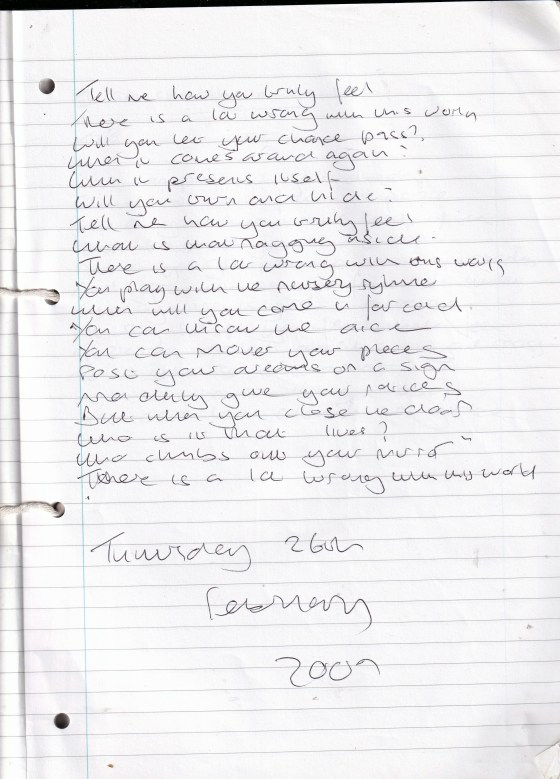 Tell me how you truly feel
There is a lot wrong with this world
Will you let your chance pass?
When it comes around again?
When it presents itself
Will you turn and hide?
Tell me how you truly feel
What is that nagging inside.
There is a lot wrong with this world
You play with the nursery rhyme
When will you come in forward.
You can throw the dice
You can move your pieces
Post your dreams on a sign
give your
But when you close the door
Who is it that lives?
Who climbs out your mirror
There is a lot wrong with this world
Thursday 26th
February
2009